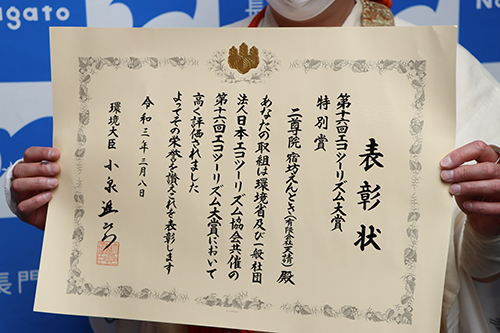 表彰状
第十六回エコツーリズム大賞
特別賞
二尊院 宿坊てんどさん(有限会社天請) 殿
あなたの取組は環境省及び一般社団
法人日本エコツーリズム協会共催の
第十六回エコツーリズム大賞において
高く評価されました
よってその栄誉を讃えこれを表彰します
令和三年三月八日
環境大臣 小泉進次郎
agato
長門
長門
Na